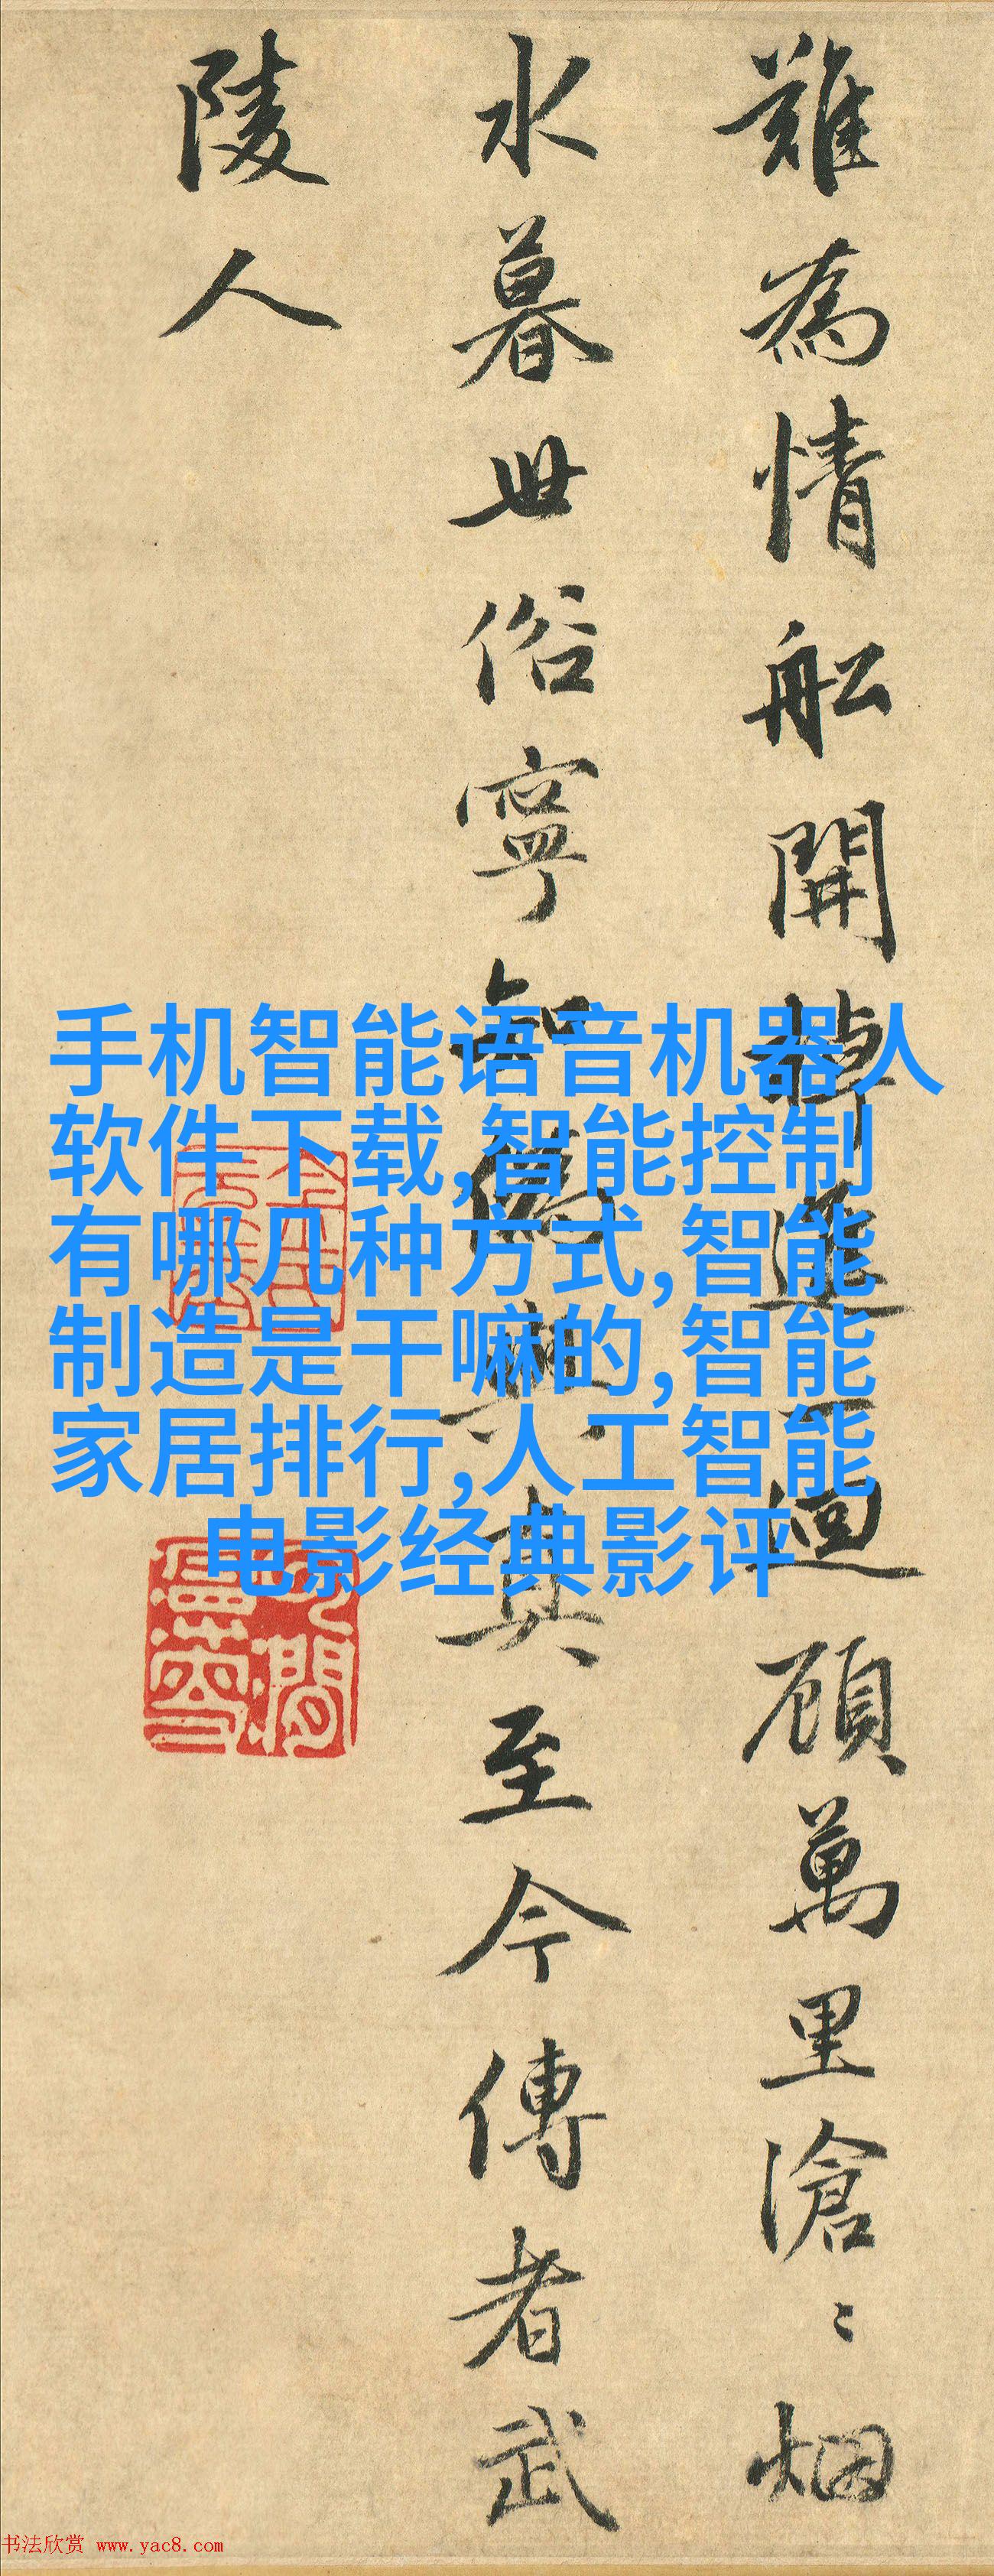 難為情舩開棹進一迴顧萬里滄〻烟
水暮世俗寧知偽與真至今傳者武
陵人
手机智能语音机器人
软件下载,智能控制
有哪几种方式,智能
制造是干嘛的,智能
家居排行,人工智能
电影经典影评
书法欣赏 www.yac8.com